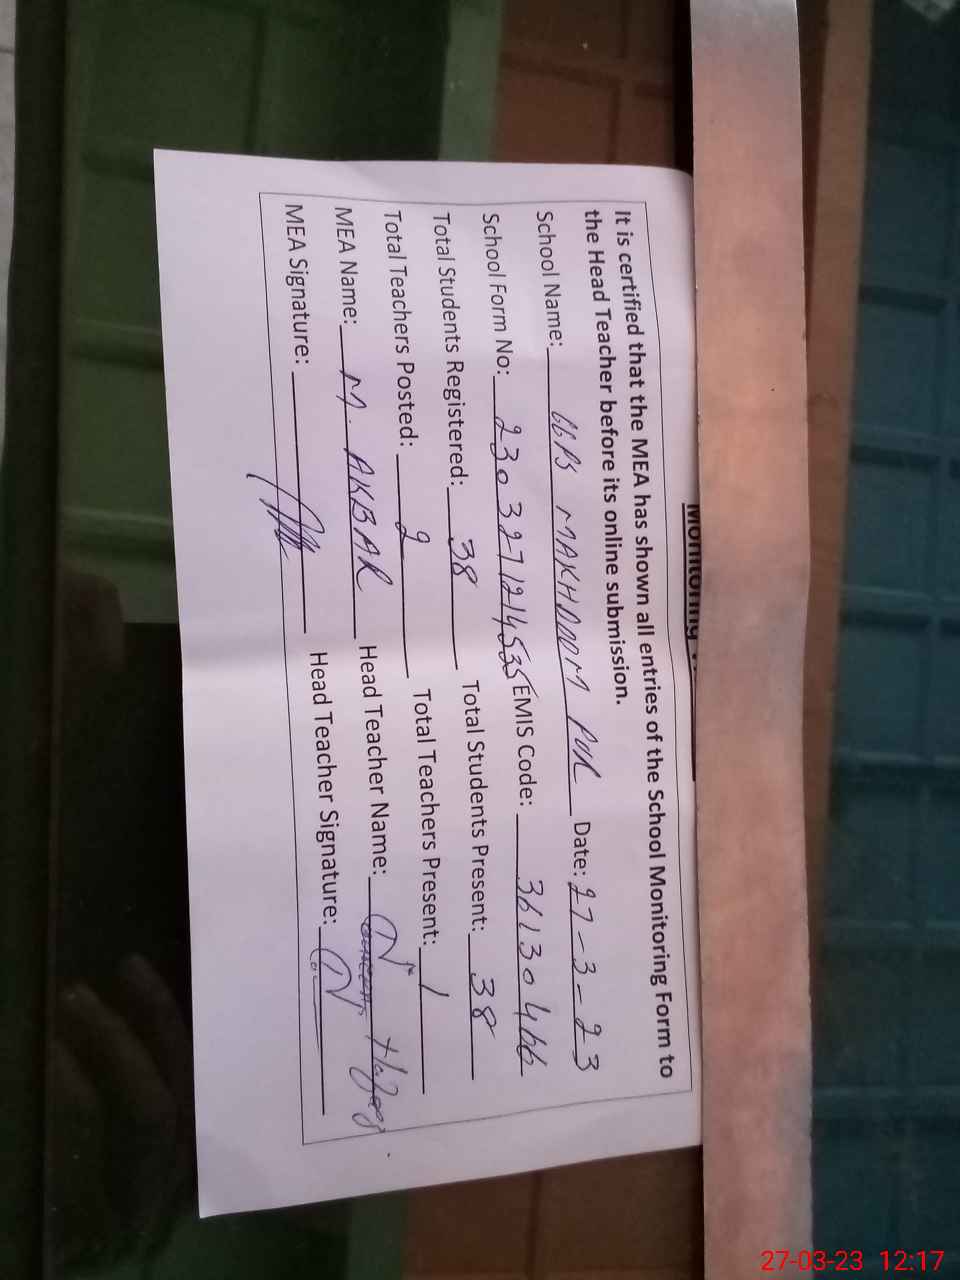 Monitoring
It is certified that the MEA has shown all entries of the School Monitoring Form to
the Head Teacher before its online submission.
School Name: GGPS MAKHDOOM PUR Date: 27-3-23
School Form No: 2303271214535 EMIS Code: 36130466
Total Students Registered: 38 Total Students Present: 38
Total Teachers Posted: 2 Total Teachers Present: 1
MEA Name: M. AKBAR Head Teacher Name:
MEA Signature: Head Teacher Signature:
27-03-23 12:17